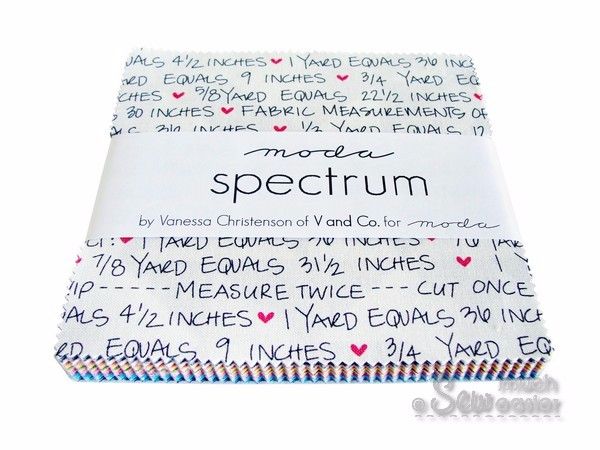 ALS 4 1/2 INCHES ♥ 1 YARD EQUALS 36 INCHES
RD EQUALS 9 INCHES ♥ 3/4 YARD EQ
CHES ♥ 5/8 YARD EQUALS 22 1/2 INCHES ♥
30 INCHES ♥ FABRIC MEASUREMENTS OF
ALS 36 INCHES ♥ 1/2 YARD EQUALS
moda
spectrum
by Vanessa Christenson of V and Co. for moda
♥ 1 YARD EQUALS 36 INCHES ♥
♥ 7/8 YARD EQUALS 31 1/2 INCHES ♥ 1 Y
IP ----- MEASURE TWICE --- CUT ONCE
ALS 4 1/2 INCHES ♥ 1 YARD EQUALS 36 INCH
RD EQUALS 9 INCHES ♥ 3/4 YARD EQ
© Sew much easier